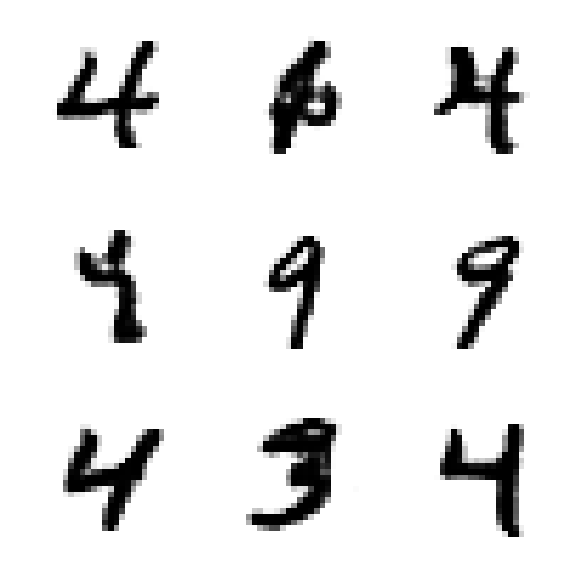 4 6 4
4 9 9
4 3 4